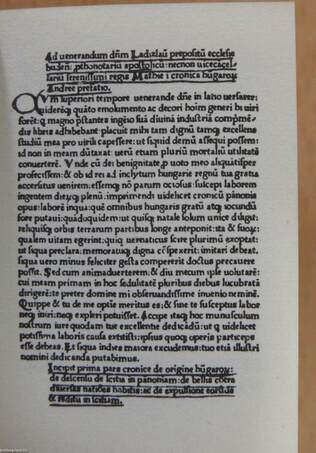 Ad venerandum dñm Ladizlaū prepositū ecclesie
budeñ: ꝓthonotariū apostolicū: necnon vicecācel-
lariū serenissimi regis Mathie i cronica hūgaroꝝ
Andree prefatio.
Qvm superiori tempore venerande dñe in latio versarer:
viderēqꝫ quāto emolumento ac decori hoīm generi hi viri
forēt: q magno p̄stantes ingēio sua divinā industria compre-
diis libris adhibebant: placuit mihi tam dignū tamqꝫ excellens
studiū mea pro virili capessere: ut siquid demū assequi possem:
id non in meam dūtaxat: verū etiam plurū mortaliū utilitatē
converterē. Vnde cū dei benignitate ꝓ voto meo aliquātisper
profecissem: & ob id rei ad inclytum hungarie regnū tua gratia
accersitus venirem: essemqꝫ nō parum ociosus: suscepi laborem
ingentem: dieqꝫ plenū: imprimēdi videlicet cronicā pānonie
opus: laborē inquā: quē omnibus hungaris gratū atqꝫ iocūdū
fore putavi: quādoquidem: ut quisqꝫ natale solum unice diligit:
reliquisqꝫ orbis terrarum partibus longe anteponit: ita & suoꝝ:
qualem vitam egerint: quiqꝫ vernaculis scire plurimū exoptat:
ut siqua preclara: memoratuqꝫ digna cōsperxerit: imitari debeat,
siqua vero minus feliciter gesta compererit doctius precavere
possit. Sed cum animadverterem: & diu mecum ipse volutarē:
cui meam primam in hoc sedulitatē pluribus diebus lucubratā
dirigerē: te preter domine mi observandissime invenio neminē.
Quippe & tu de me optie meritus es: & sine te susceptus labor
neqꝫ iniri: neqꝫ expleri potuisset. Accipe itaqꝫ hoc munusculum
nostrum: iure quodam tue excellentie dedicadū: ut q videlicet
potissima laboris causa extitisti: ipsius quoqꝫ operis particeps
esse debeas. Et siqua indies maiora excudemus: tuo etiā illustri
nomini dedicanda putabimus.
Incipit prima pars cronice de origine hūgaroꝝ:
de descensu de scitia in pānoniam: de bellis cōtra
diversas natiões habitis: ac de expulsione eorūdē
& reditu in scitiam.